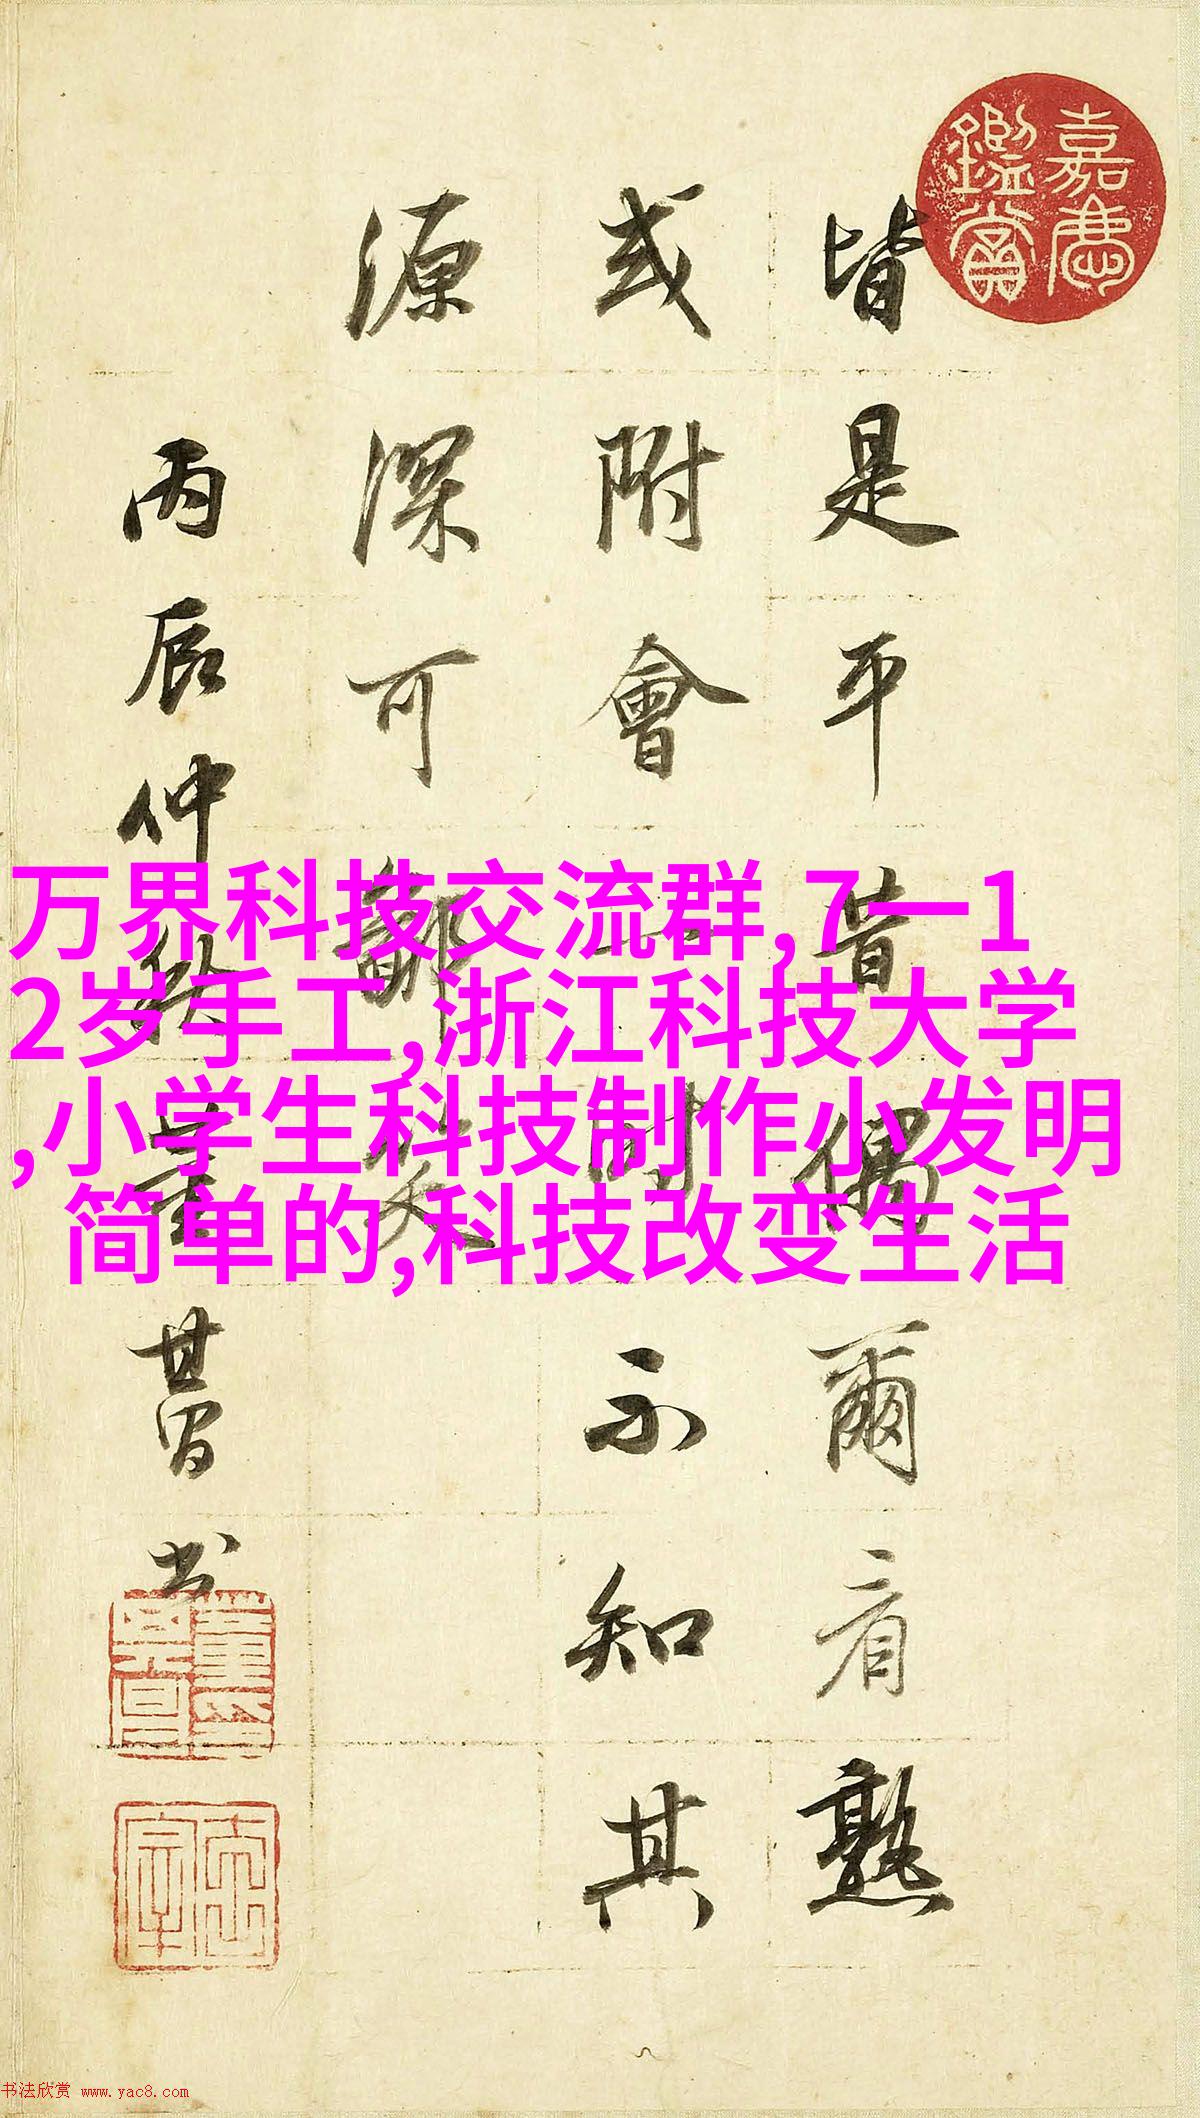 嘉慶
鑑賞
皆是平昔偶爾看熟
或附會一時不知其
源深可鄙笑
丙辰仲秋董其昌书
万界科技交流群,7一1
2岁手工,浙江科技大学
,小学生科技制作小发明
简单的,科技改变生活
书法欣赏 www.yac8.com